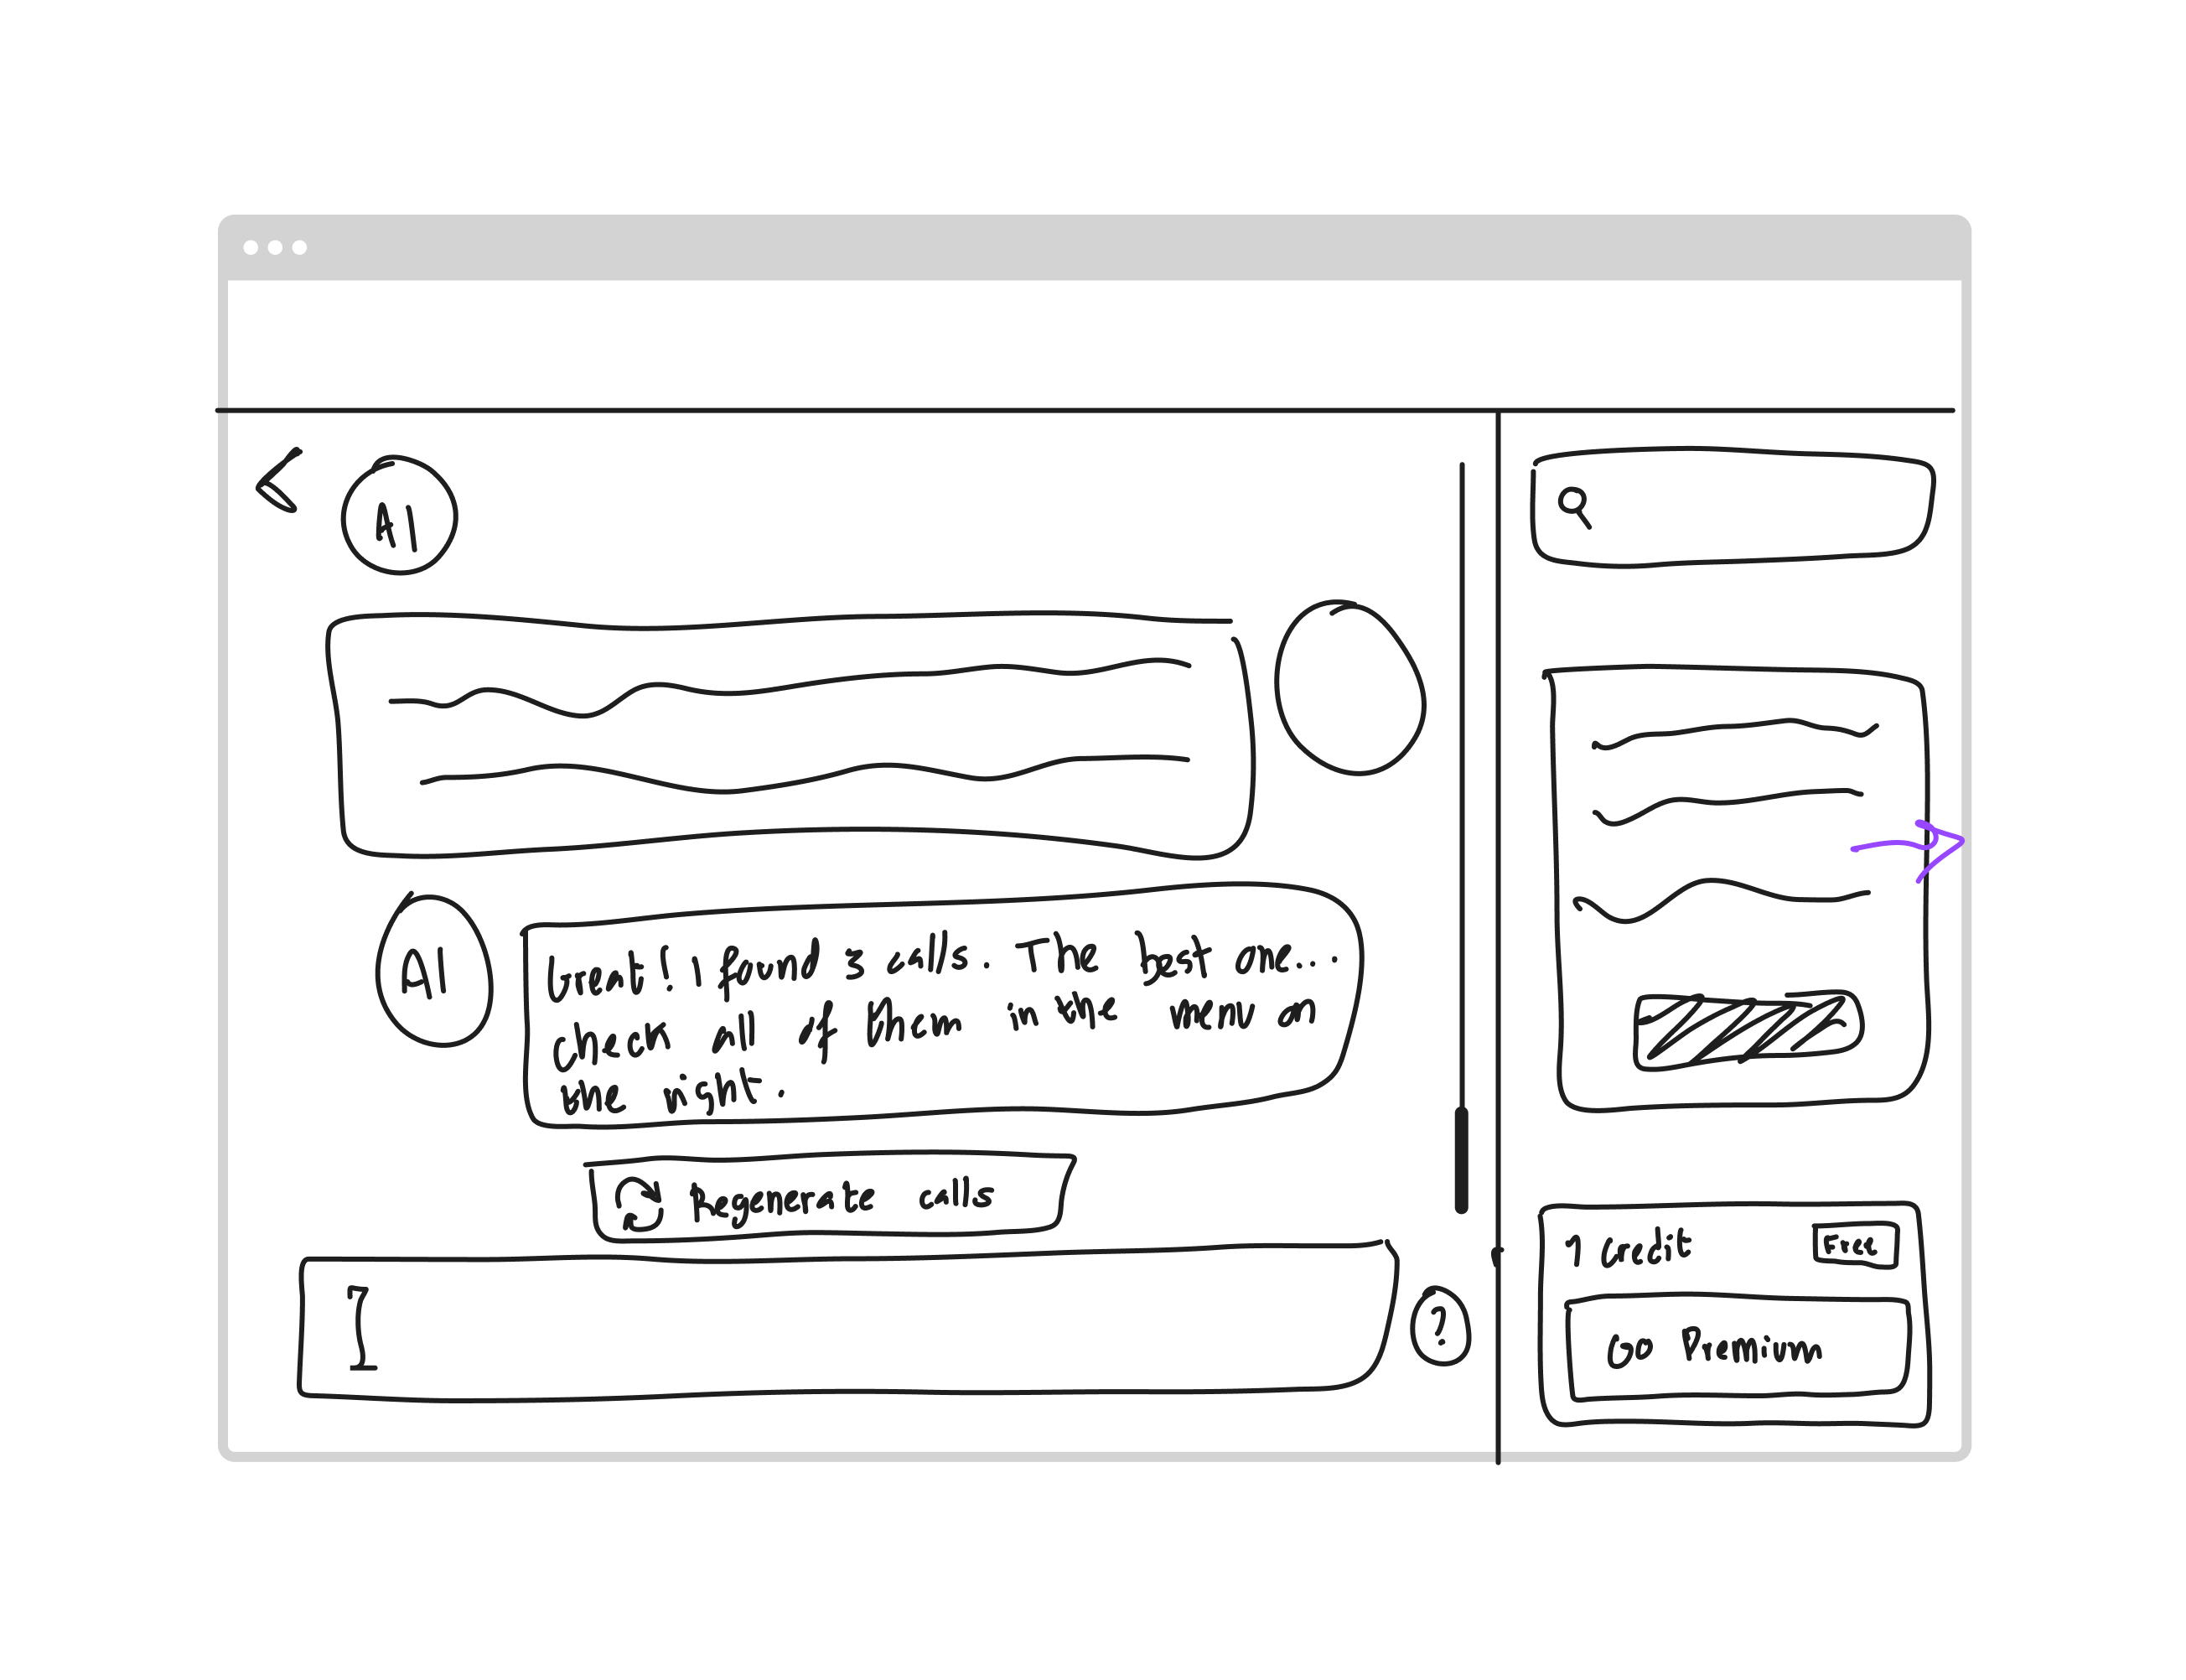 AI
AI
Great! I found 3 calls. The best one...
Check all of them in the menu on
the right.
Regenerate calls
?
1 credit
Free
Go Premium